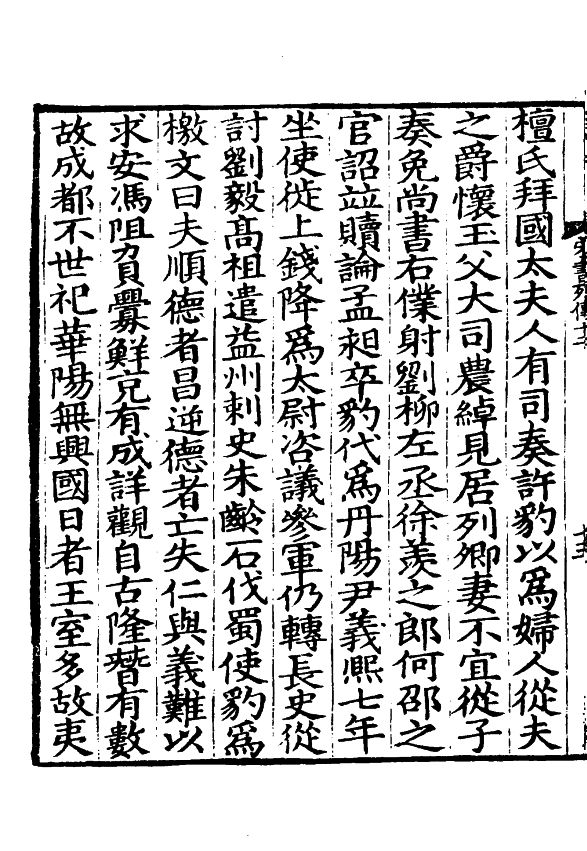 檀氏拜國太夫人有司奏許豹以爲婦人從夫
之爵懷玉父大司農綽見居列卿妻不宜從子
奏免尚書右僕射劉柳左丞徐羨之郎何邵之
官詔並贖論孟昶卒豹代爲丹陽尹義熙七年
坐使徙上錢降爲太尉咨議參軍仍轉長史從
討劉毅高祖遣益州刺史朱齡石伐蜀使豹爲
檄文曰夫順德者昌逆德者亡失仁與義難以
求安馮阻負釁鮮克有成詳觀自古隆替有數
故成都不世祀華陽無興國日者王室多故夷